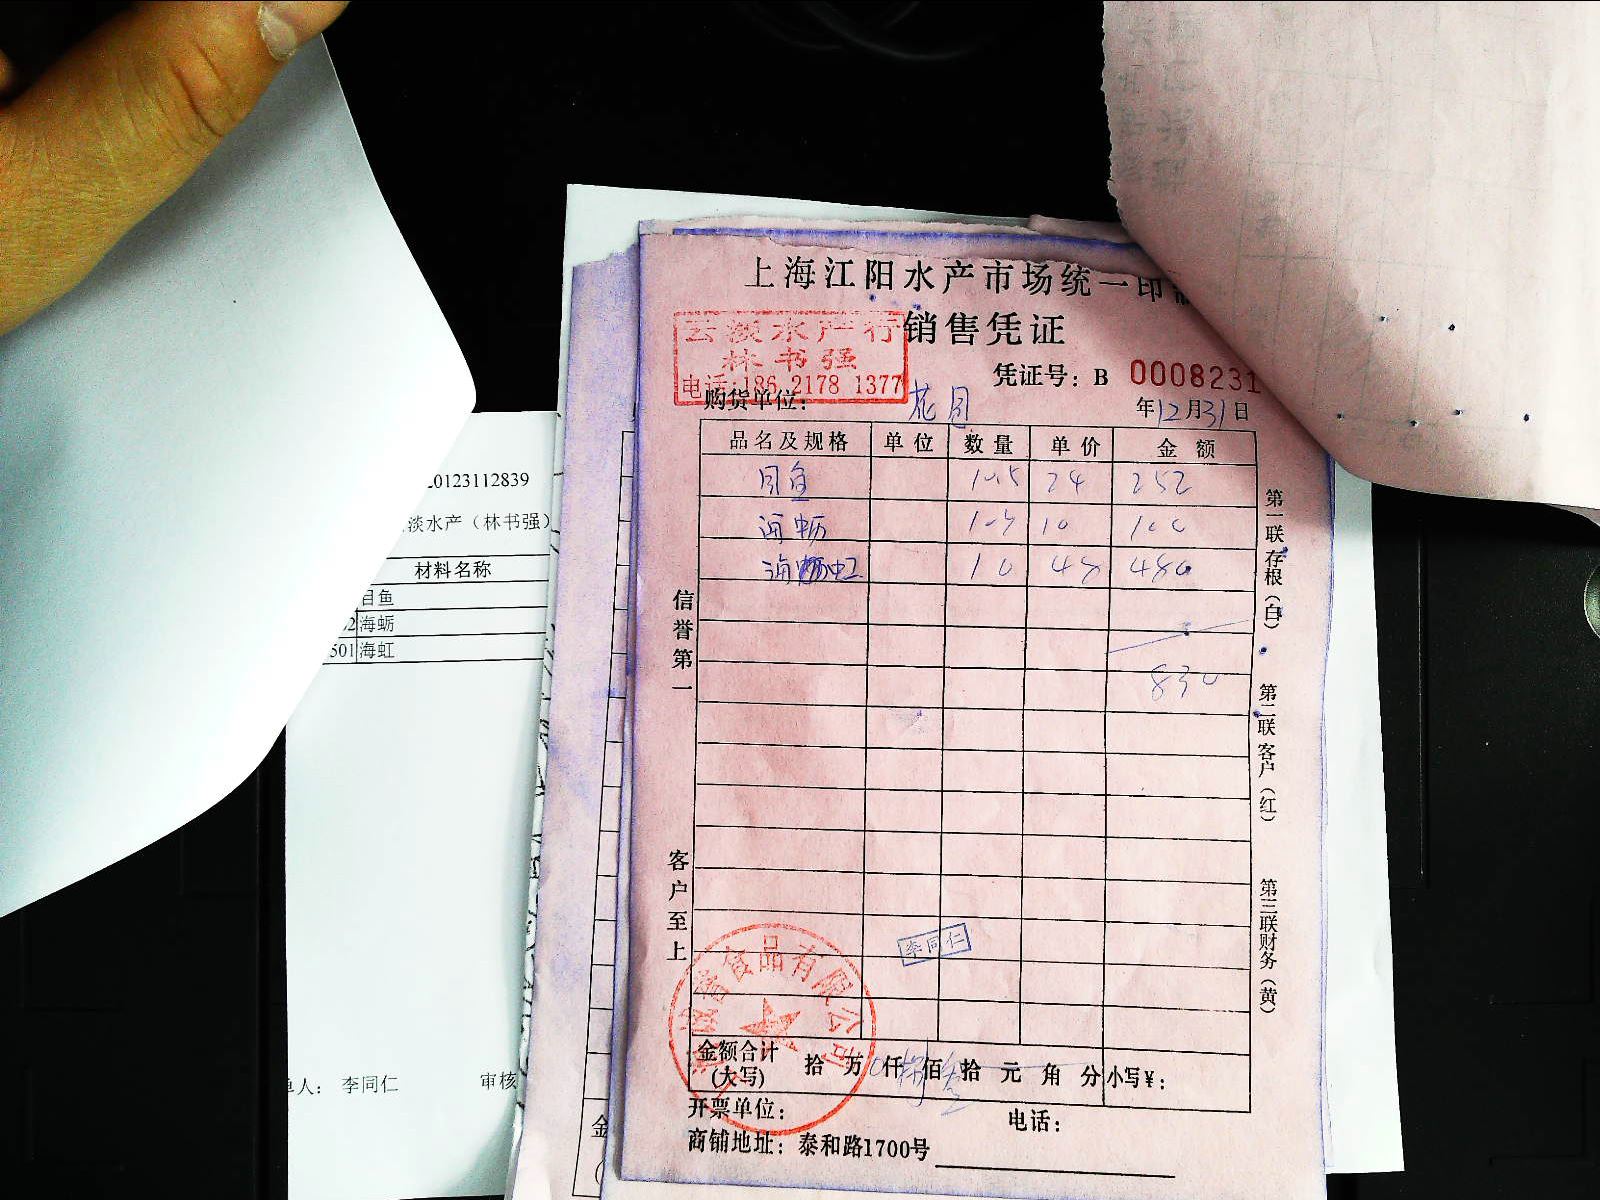 上海江阳水产市场统一印制
云淡水产行
林书强
电话:186 2178 1377
销售凭证
凭证号：B 0008231
购货单位：
年12月31日
品名及规格 单位 数量 单价 金额
目鱼 10.5 24 252
海蛎 10 10 100
海虹 10 48 480
830
信誉第一
客户至上
第一联存根（白）
第二联客户（红）
第三联财务（黄）
李同仁
食品有限公司
金额合计
(大写) 拾 万 仟 佰 拾 元 角 分 小写¥：
开票单位： 电话：
商铺地址：泰和路1700号
20123112839
淡水产（林书强）
材料名称
目鱼
海蛎
501 海虹
单人： 李同仁 审核
金